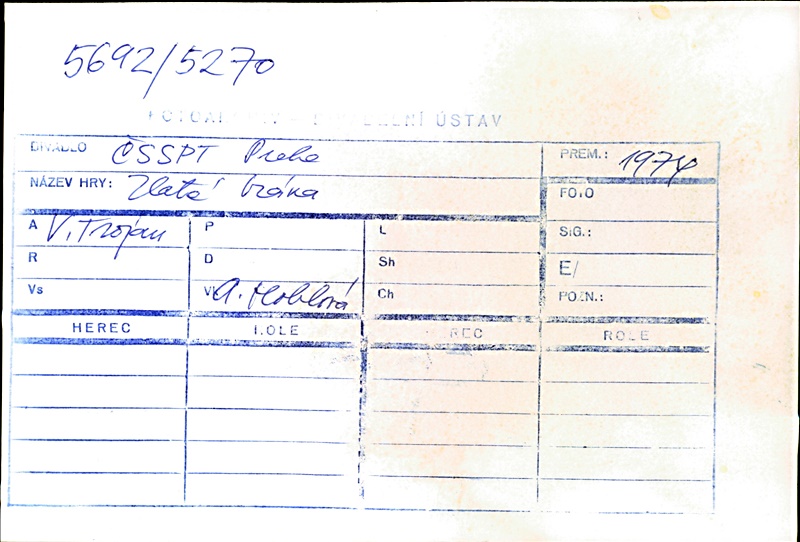 5692/5270
ÚSTAV
DIVADLO ČSSPT Praha PREM.: 1974
NÁZEV HRY: Zlatá brána FOTO
A V. Trojan P L SIG.:
R D Sh E/
Vs V A. Hoblová Ch POZN.:
HEREC ROLE HEREC ROLE